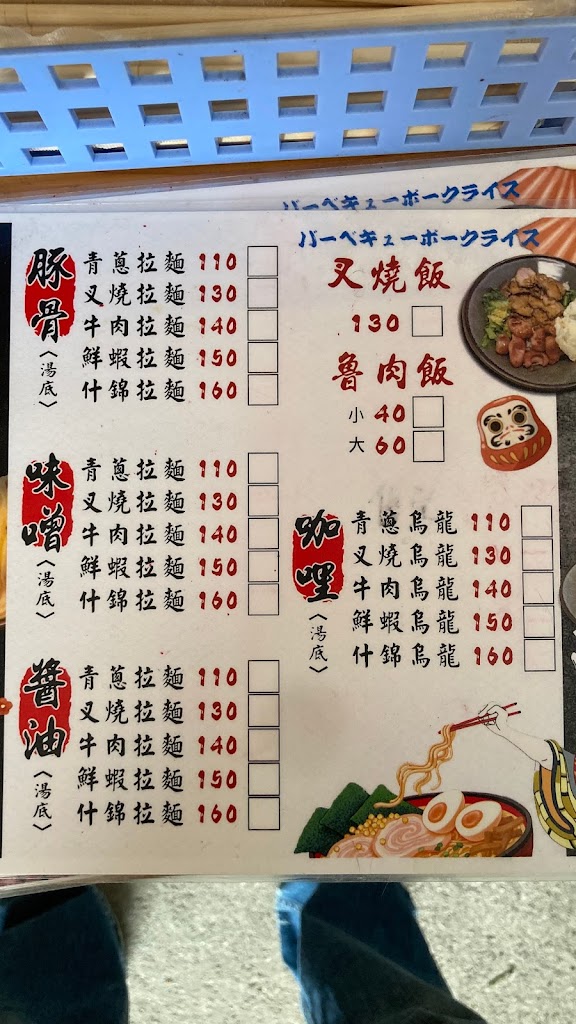 バーベキューポークライス
豚骨
〈湯底〉
青蔥拉麵 110
叉燒拉麵 130
牛肉拉麵 140
鮮蝦拉麵 150
什錦拉麵 160
味噌
〈湯底〉
青蔥拉麵 110
叉燒拉麵 130
牛肉拉麵 140
鮮蝦拉麵 150
什錦拉麵 160
醬油
〈湯底〉
青蔥拉麵 110
叉燒拉麵 130
牛肉拉麵 140
鮮蝦拉麵 150
什錦拉麵 160
バーベキューポークライス
叉燒飯
130
魯肉飯
小 40
大 60
咖哩
〈湯底〉
青蔥烏龍 110
叉燒烏龍 130
牛肉烏龍 140
鮮蝦烏龍 150
什錦烏龍 160